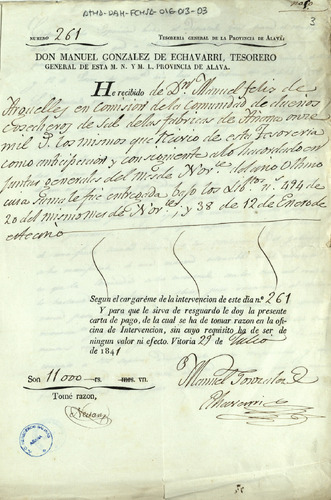 ATHA-DAH-FCHSA-016-03-03
3
NUMERO 261
TESORERIA GENERAL DE LA PROVINCIA DE ALAVA
DON MANUEL GONZALEZ DE ECHAVARRI, TESORERO
GENERAL DE ESTA M. N. Y M. L. PROVINCIA DE ALAVA.
He recibido de Dn. Manuel felis de
Arguelles en comision de la Comunidad de dueños
Cosecheros de Sal de las fabricas de Añana once
mil r.s los mismos que recivio de esta Tesoreria
como anticipacion y consiguiente a lo acordado en
Juntas generales del mes de Nov.e del año ultimo
cuia suma le fue entregada bajo los Lib.tos n.º 494 de
20 del mismo mes de Nov.e, y 38 de 12 de Enero de
este año
Segun el cargaréme de la intervencion de este dia n.º 261
Y para que le sirva de resguardo le doy la presente
carta de pago, de la cual se ha de tomar razon en la ofi-
cina de Intervencion, sin cuyo requisito ha de ser de
ningun valor ni efecto. Vitoria 29 de Julio
de 1841
Son 11000 rs. mrs. vn.
Tomé razon,
Manuel Gonzalez de
Echavarri